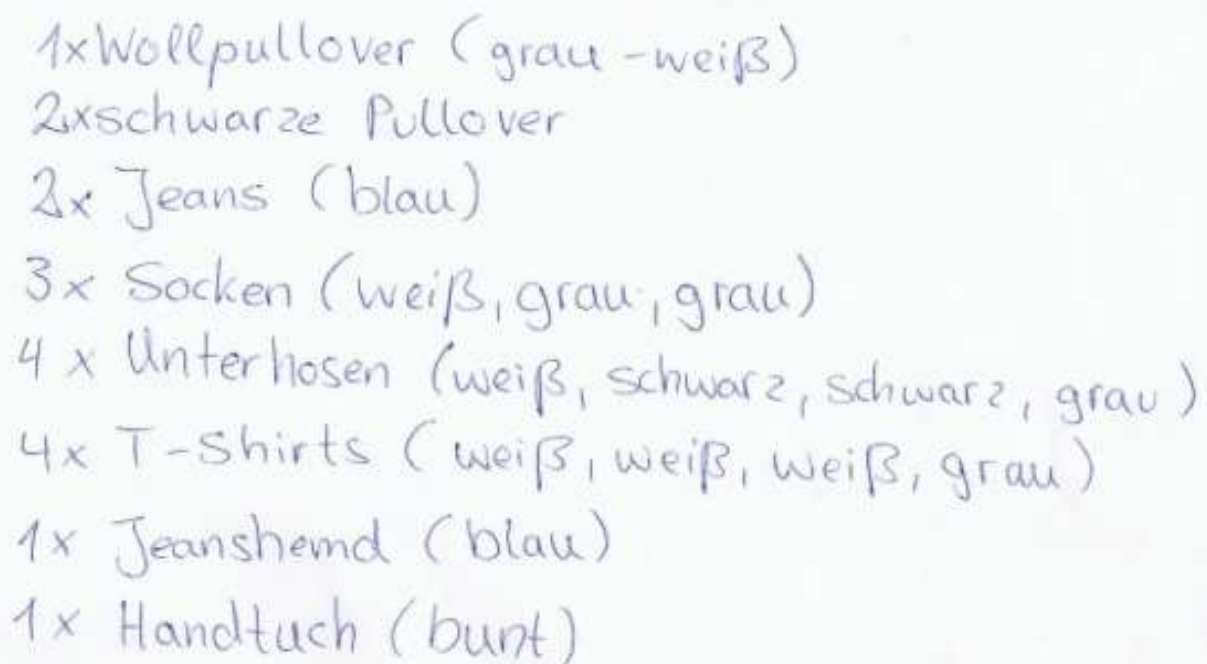 1x Wollpullover (grau-weiß)
2x schwarze Pullover
2x Jeans (blau)
3x Socken (weiß, grau, grau)
4x Unterhosen (weiß, schwarz, schwarz, grau)
4x T-Shirts (weiß, weiß, weiß, grau)
1x Jeanshemd (blau)
1x Handtuch (bunt)